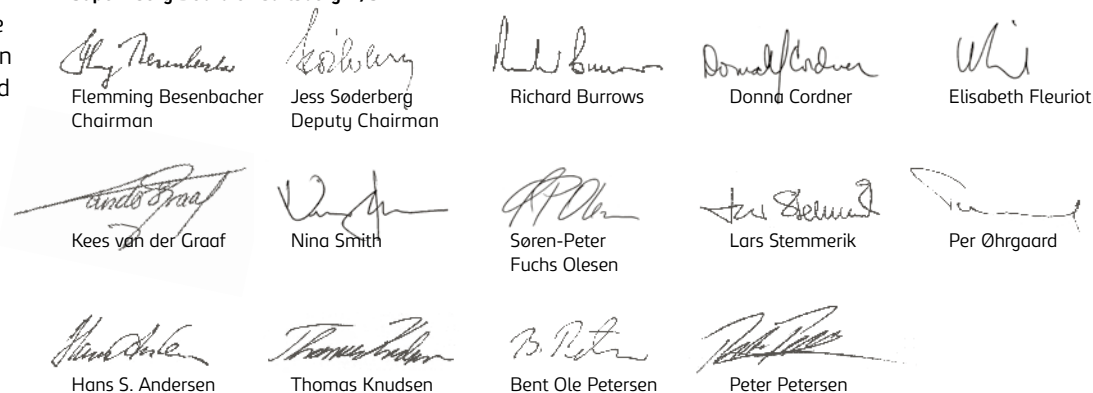 e
n
d
Flemming Besenbacher
Chairman
Jess Søderberg
Deputy Chairman
Richard Burrows
Donna Cordner
Elisabeth Fleuriot
Kees van der Graaf
Nina Smith
Søren-Peter
Fuchs Olesen
Lars Stemmerik
Per Øhrgaard
Hans S. Andersen
Thomas Knudsen
Bent Ole Petersen
Peter Petersen